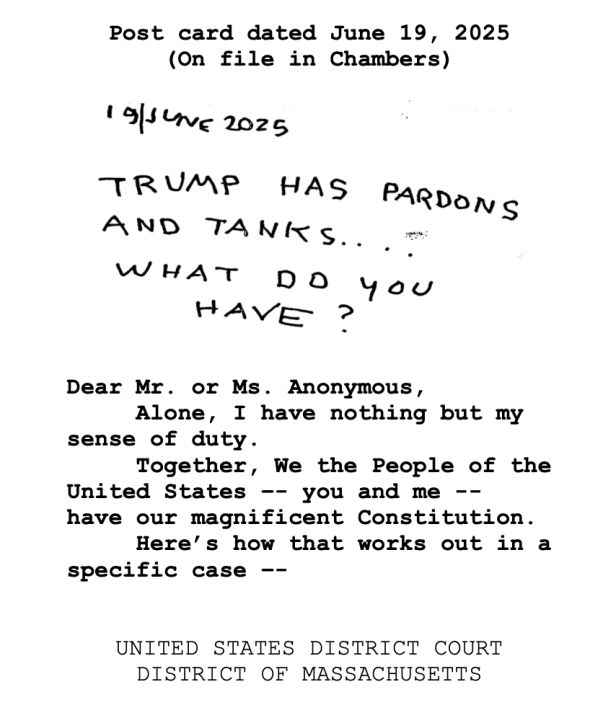 Post card dated June 19, 2025
(On file in Chambers)
19/JUNE 2025
TRUMP HAS PARDONS
AND TANKS....
WHAT DO YOU
HAVE?
Dear Mr. or Ms. Anonymous,
Alone, I have nothing but my
sense of duty.
Together, We the People of the
United States -- you and me --
have our magnificent Constitution.
Here's how that works out in a
specific case --
UNITED STATES DISTRICT COURT
DISTRICT OF MASSACHUSETTS